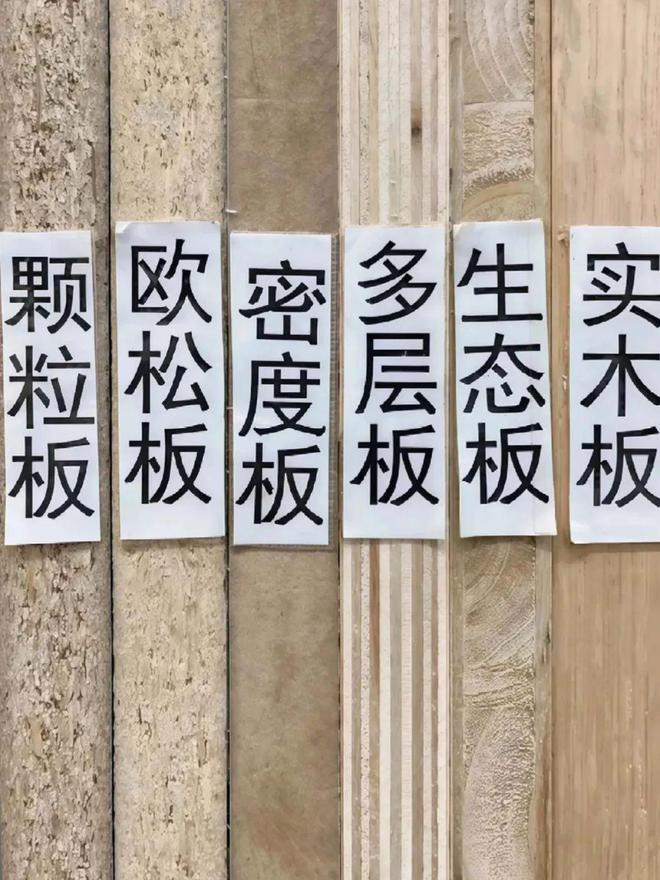 颗粒板
欧松板
密度板
多层板
生态板
实木板